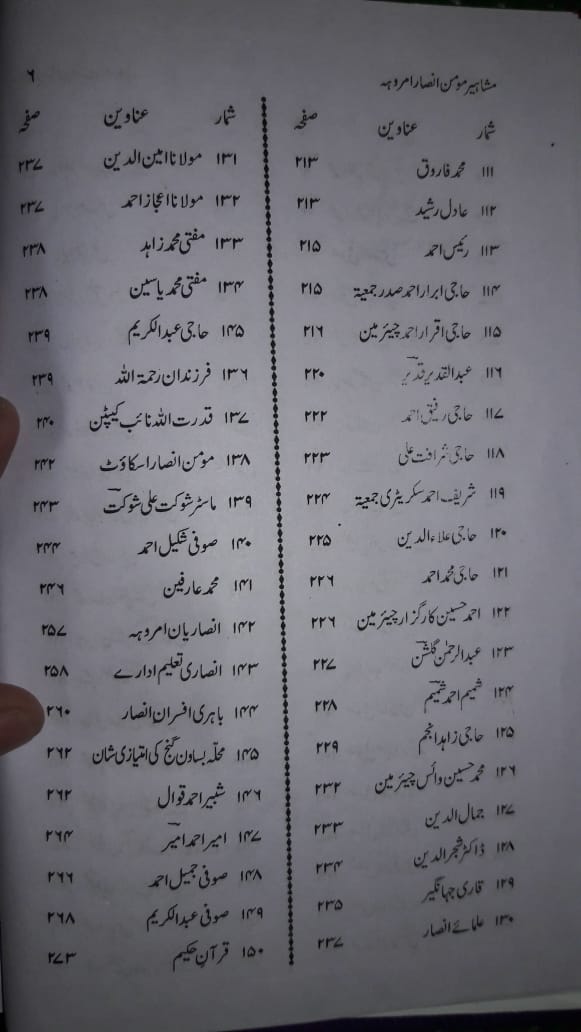 مشاہیر مومن انصار امروہہ
۶
شمار عناوین صفحہ
۱۱۱ محمد فاروق ۲۱۳
۱۱۲ عادل رشید ۲۱۳
۱۱۳ رئیس احمد ۲۱۵
۱۱۴ حاجی ابرار احمد صدر جمعیۃ ۲۱۵
۱۱۵ حاجی اقرار احمد چیئرمین ۲۱۶
۱۱۶ عبدالقدیر قدیر ۲۲۰
۱۱۷ حاجی رفیق احمد ۲۲۲
۱۱۸ حاجی شرافت علی ۲۲۳
۱۱۹ شریف احمد سکریٹری جمعیۃ ۲۲۴
۱۲۰ حاجی علاءالدین ۲۲۵
۱۲۱ حاجی محمد احمد ۲۲۶
۱۲۲ احمد حسین کارگزار چیئرمین ۲۲۶
۱۲۳ عبدالرحمٰن گلشن ۲۲۷
۱۲۴ شمیم احمد شمیم ۲۲۸
۱۲۵ حاجی زاہد انجم ۲۲۹
۱۲۶ محمد حسین وائس چیئرمین ۲۳۲
۱۲۷ جمال الدین ۲۳۳
۱۲۸ ڈاکٹر شجر الدین ۲۳۴
۱۲۹ قاری جہانگیر ۲۳۵
۱۳۰ علمائے انصار ۲۳۷
شمار عناوین صفحہ
۱۳۱ مولانا امین الدین ۲۳۷
۱۳۲ مولانا اعجاز احمد ۲۳۷
۱۳۳ مفتی محمد زاہد ۲۳۸
۱۳۴ مفتی محمد یاسین ۲۳۸
۱۴۵ حاجی عبدالکریم ۲۳۹
۱۳۶ فرزندان رحمۃ اللہ ۲۳۹
۱۳۷ قدرت اللہ نائب کیپٹن ۲۴۰
۱۳۸ مومن انصار اسکاؤٹ ۲۴۲
۱۳۹ ماسٹر شوکت علی شوکت ۲۴۳
۱۴۰ صوفی شکیل احمد ۲۴۴
۱۴۱ محمد عارفین ۲۴۶
۱۴۲ انصاریان امروہہ ۲۵۷
۱۴۳ انصاری تعلیم ادارے ۲۵۸
۱۴۴ باہری افسران انصار ۲۶۰
۱۴۵ محلّہ بساون گنج کی امتیازی شان ۲۶۲
۱۴۶ شبیر احمد قوال ۲۶۲
۱۴۷ امیر احمد امیر ۲۶۴
۱۴۸ صوفی جمیل احمد ۲۶۶
۱۴۹ صوفی عبدالکریم ۲۶۸
۱۵۰ قرآنِ حکیم ۲۷۳